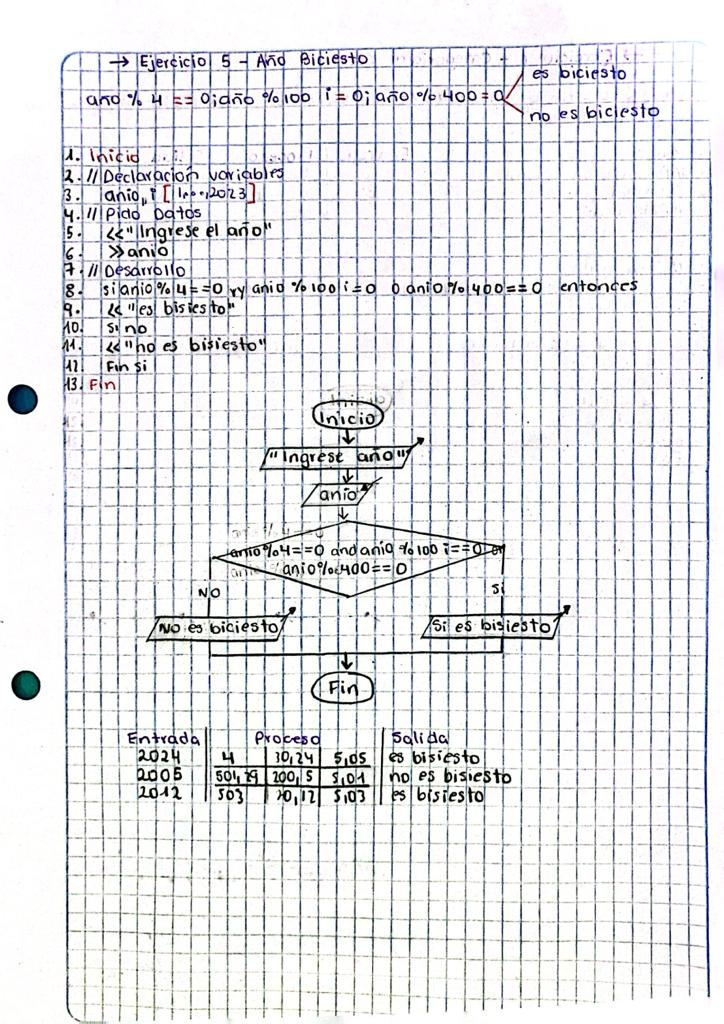 → Ejercicio 5 - Año Biciesto
es biciesto
año % 4 == 0; año % 100 i = 0; año % 400 = 0
no es biciesto
1. Inicio
2. // Declaración variables
3. anio, i [1,...,2023]
4. // Pido Datos
5. << "Ingrese el año"
6. >> anio
7. // Desarrollo
8. si anio % 4 == 0 y anio % 100 i = 0 o anio % 400 == 0 entonces
9. << "es bisiesto"
10. Si no
11. << "no es bisiesto"
12. Fin si
13. Fin
Inicio
"Ingrese año"
anio
anio % 4 == 0 and anio % 100 i == 0 or
anio % 400 == 0
NO Si
No es biciesto Si es bisiesto
Fin
Entrada Proceso Salida
2024 4 5,05 es bisiesto
2005 200,5 5,01 no es bisiesto
2012 503 20,12 5,03 es bisiesto